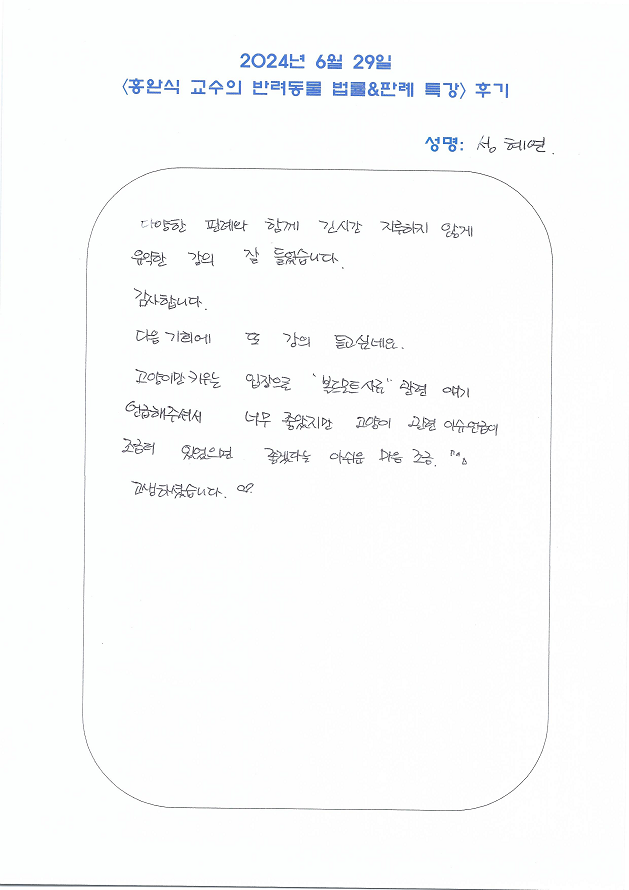 2024년 6월 29일
<홍완식 교수의 반려동물 법률&판례 특강> 후기
성명: 성혜연.
다양한 판례와 함께 긴시간 지루하지 않게
유익한 강의 잘 들었습니다.
감사합니다.
다음 기회에 또 강의 듣고싶네요.
고양이만 키우는 입장으로 "볼드모트사료" 관련 얘기
언급해주셔서 너무 좋았지만 고양이 관련 이슈언급이
조금더 있었으면 좋겠다는 아쉬운 마음 조금.
고생하셨습니다.